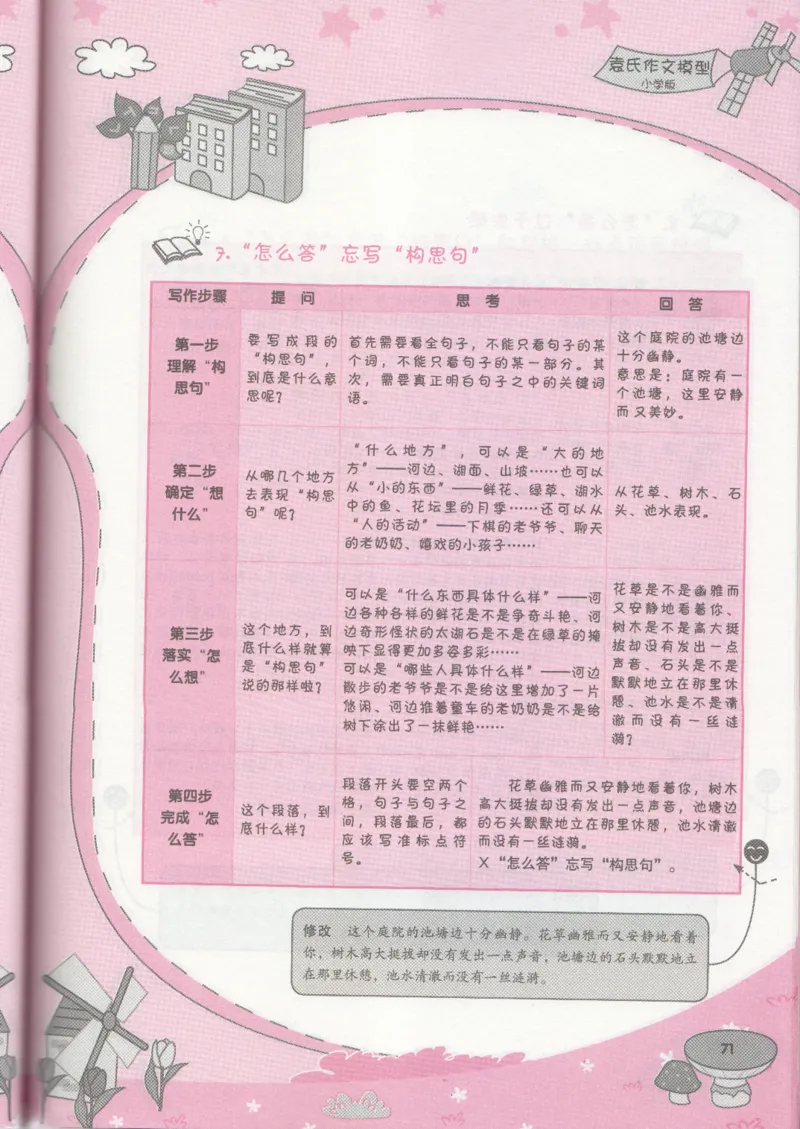 袁氏作文模型
小学版
7.“怎么答”忘写“构思句”
写作步骤 提问 思考 回答
第一步
理解“构
思句”
要写成段的
“构思句”,
到底是什么意
思呢?
首先需要看全句子,不能只看句子的某
个词,不能只看句子的某一部分。其
次,需要真正明白句子之中的关键词
语。
这个庭院的池塘边
十分幽静。
意思是:庭院有一
个池塘,这里安静
而又美妙。
第二步
确定“想
什么”
从哪几个地方
去表现“构思
句”呢?
“什么地方”,可以是“大的地
方”——河边、湖面、山坡……也可以
从“小的东西”——鲜花、绿草、湖水
中的鱼、花坛里的月季……还可以从
“人的活动”——下棋的老爷爷、聊天
的老奶奶、嬉戏的小孩子……
从花草、树木、石
头、池水表现。
第三步
落实“怎
么想”
这个地方,到
底什么样就算
是“构思句”
说的那样啦?
可以是“什么东西具体什么样”——河
边各种各样的鲜花是不是争奇斗艳、河
边奇形怪状的太湖石是不是在绿草的掩
映下显得更加多姿多彩……
可以是“哪些人具体什么样”——河边
散步的老爷爷是不是给这里增加了一片
悠闲、河边推着童车的老奶奶是不是给
树下涂出了一抹鲜艳……
花草是不是幽雅而
又安静地看着你、
树木是不是高大挺
拔却没有发出一点
声音、石头是不是
默默地立在那里休
憩、池水是不是清
澈而没有一丝涟
漪?
第四步
完成“怎
么答”
这个段落,到
底什么样?
段落开头要空两个
格,句子与句子之
间,段落最后,都
应该写准标点符
号。
花草幽雅而又安静地看着你,树木
高大挺拔却没有发出一点声音,池塘边
的石头默默地立在那里休憩,池水清澈
而没有一丝涟漪。
X“怎么答”忘写“构思句”。
修改 这个庭院的池塘边十分幽静。花草幽雅而又安静地看着
你,树木高大挺拔却没有发出一点声音,池塘边的石头默默地立
在那里休憩,池水清澈而没有一丝涟漪。
71